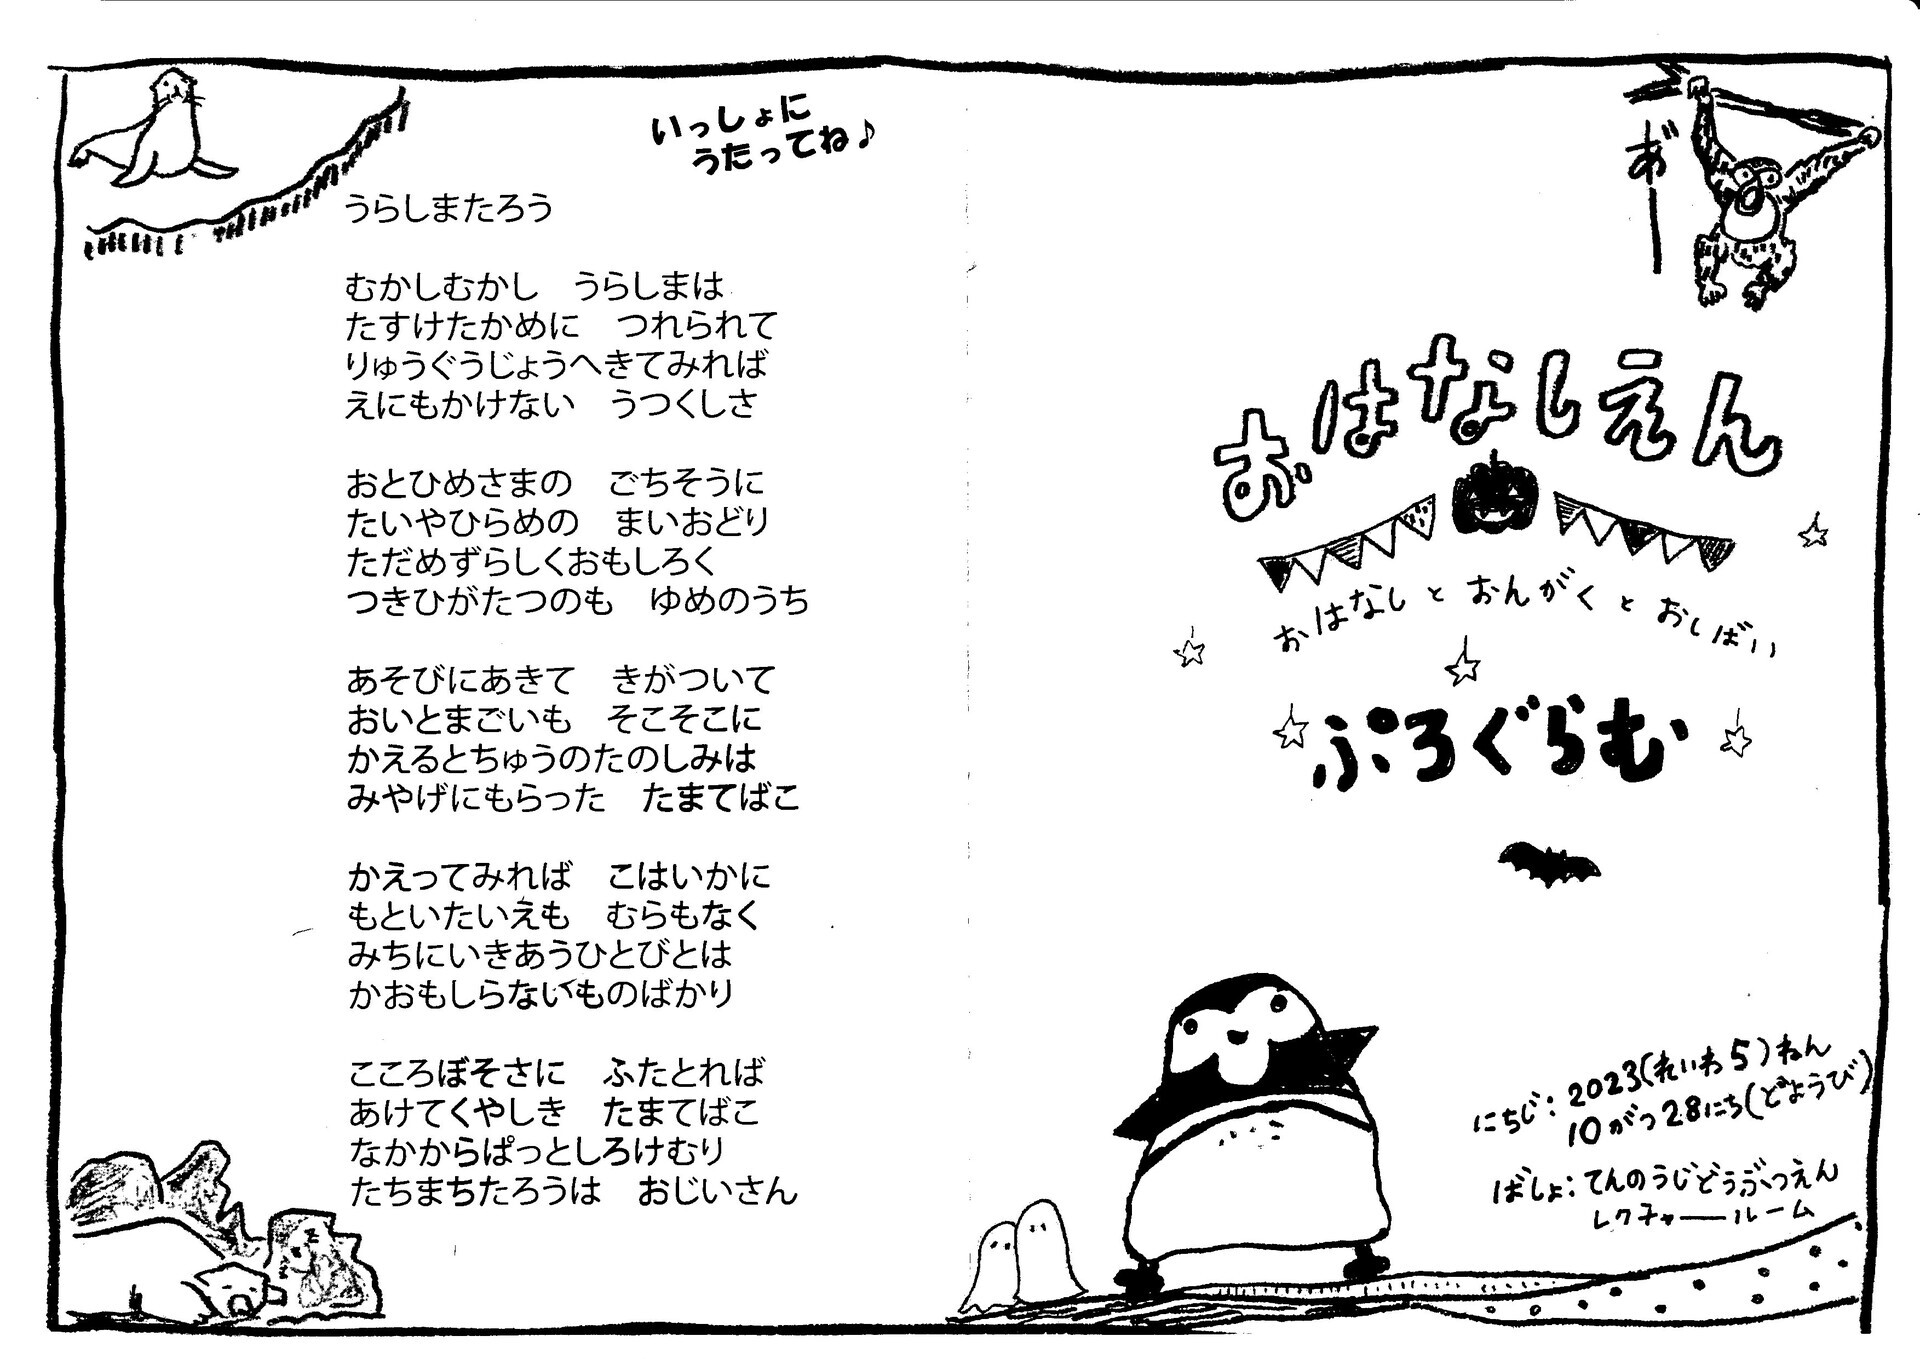 いっしょに
うたってね♪
うらしまたろう
むかしむかし　うらしまは
たすけたかめに　つれられて
りゅうぐうじょうへきてみれば
えにもかけない　うつくしさ
おとひめさまの　ごちそうに
たいやひらめの　まいおどり
ただめずらしくおもしろく
つきひがたつのも　ゆめのうち
あそびにあきて　きがついて
おいとまごいも　そこそこに
かえるとちゅうのたのしみは
みやげにもらった　たまてばこ
かえってみれば　こはいかに
もといたいえも　むらもなく
みちにいきあうひとびとは
かおもしらないものばかり
こころぼそさに　ふたとれば
あけてくやしき　たまてばこ
なかからぱっとしろけむり
たちまちたろうは　おじいさん
あ゛ー
おはなしえん
おはなしと おんがくと おしばい
ぷろぐらむ
にちじ：2023(れいわ5)ねん
10がつ28にち(どようび)
ばしょ：てんのうじどうぶつえん
レクチャールーム